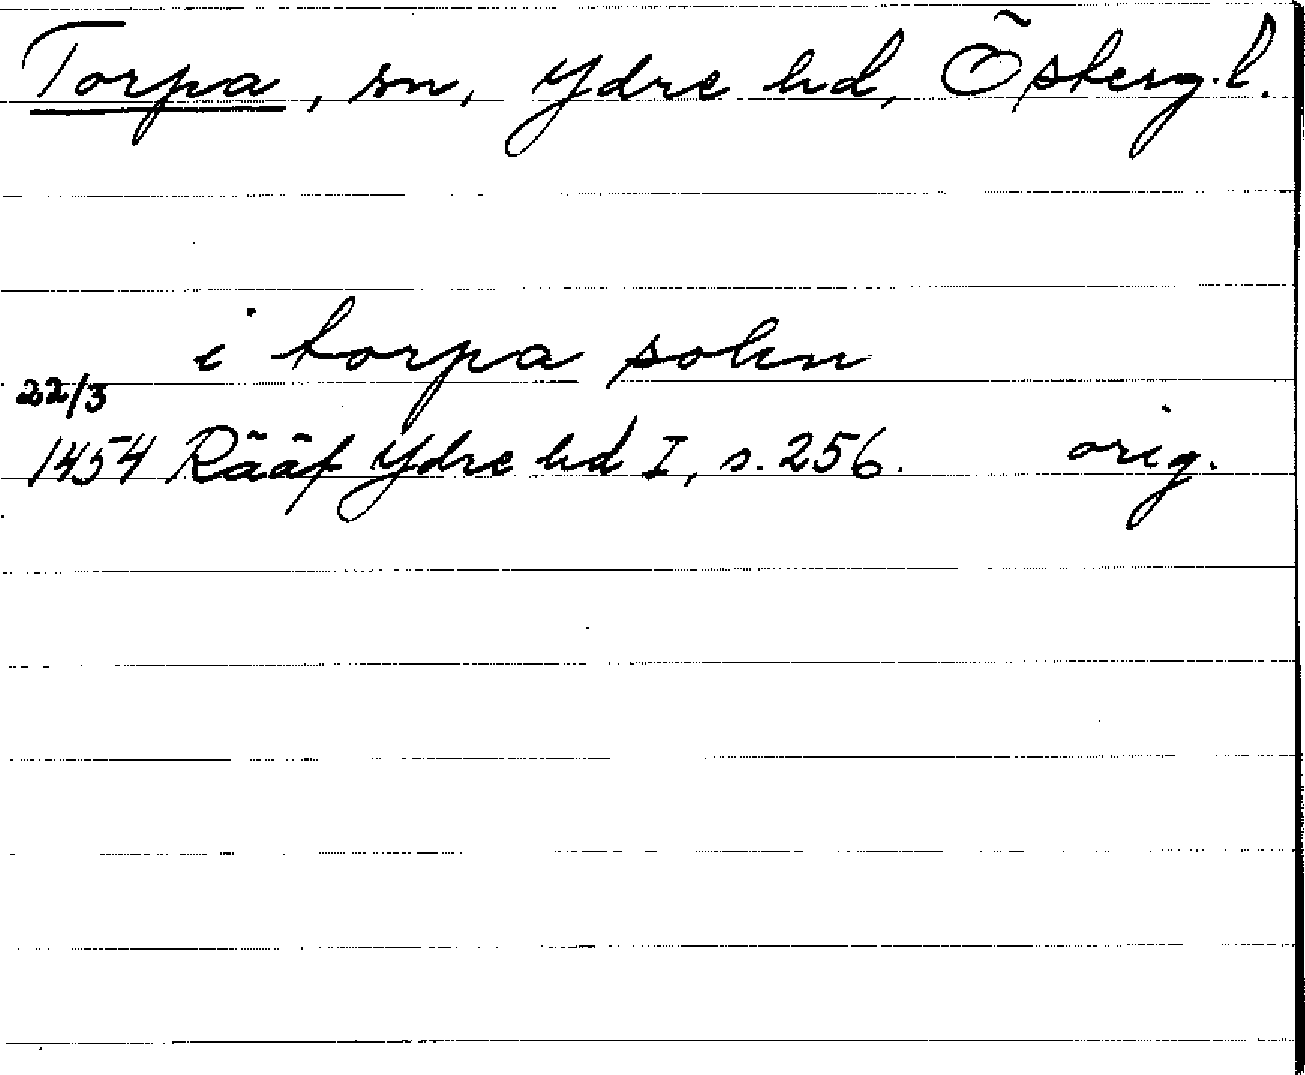 Torpa, sn, Ydre hd, Österg.l.
i torpa sokn
22/3
1454 Rääf Ydre hd I, s. 256. orig.